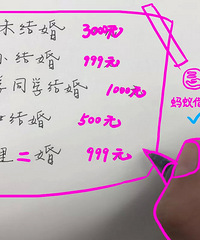 结婚 300元
结婚 999元
同学结婚 1000元
结婚 500元
里二婚 999元
蚂蚁